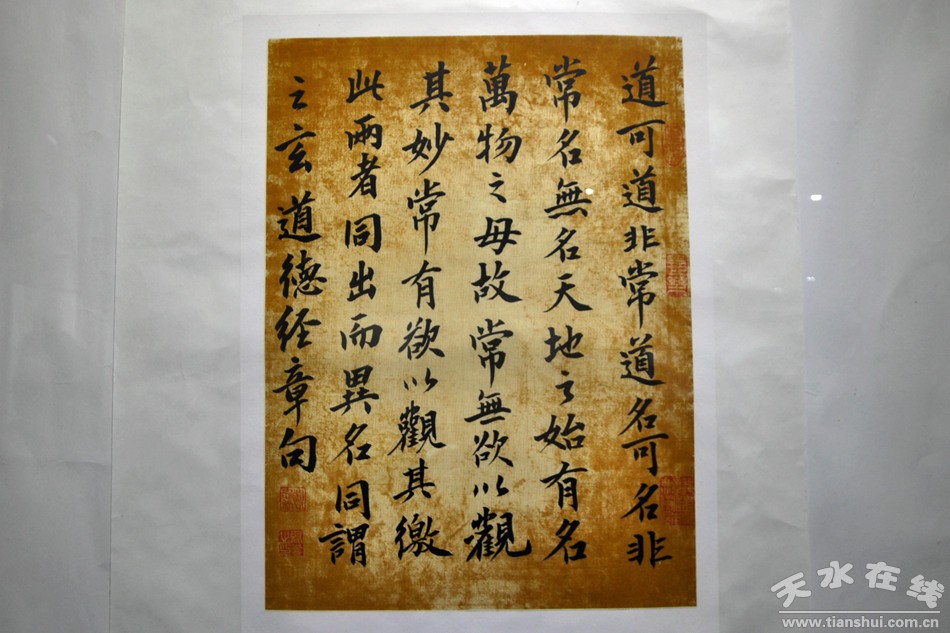 道可道非常道名可名非
常名無名天地之始有名
萬物之母故常無欲以觀
其妙常有欲以觀其徼
此兩者同出而異名同謂
之玄道德经章句
天水在线
www.tianshui.com.cn